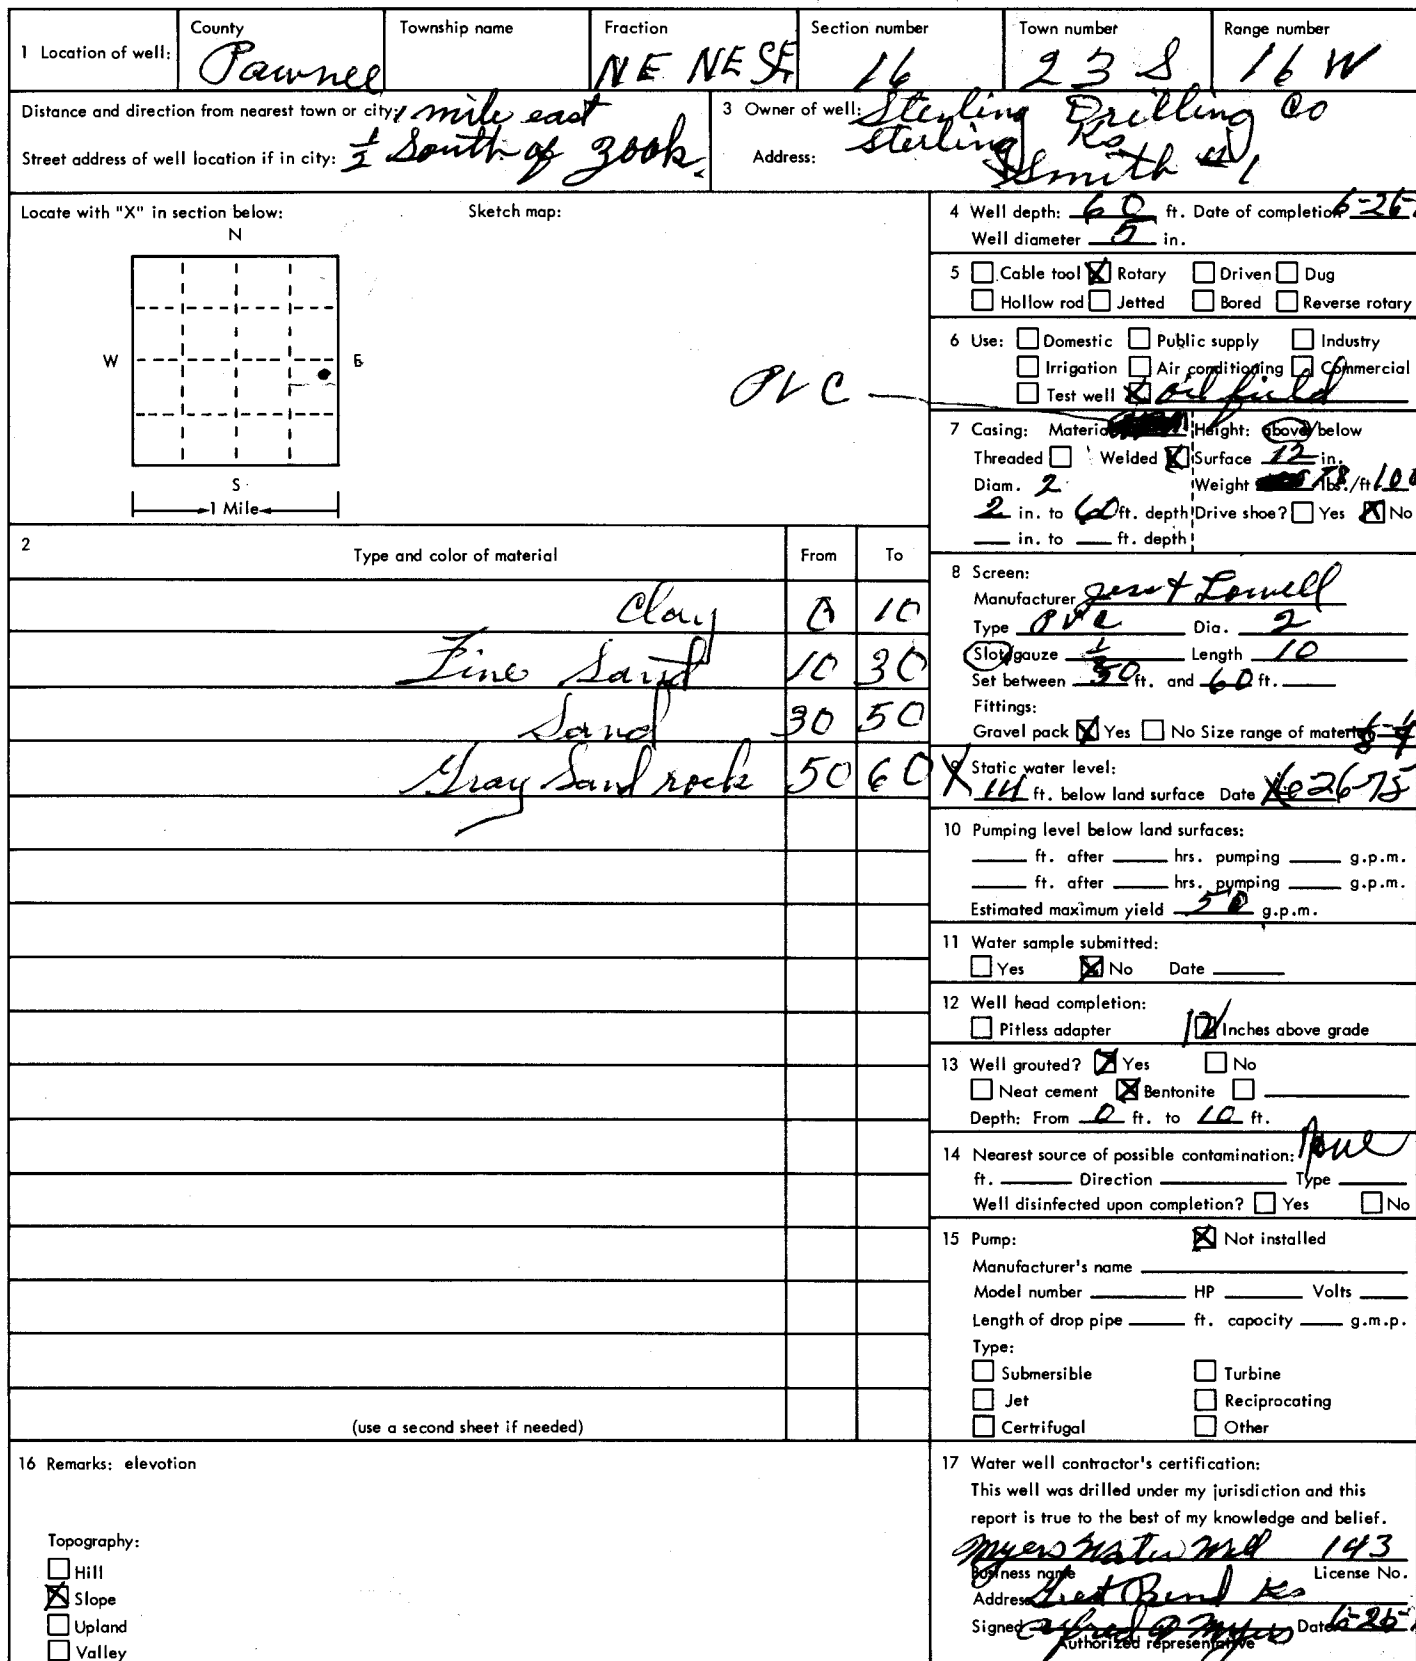 1 Location of well: County Township name Fraction Section number Town number Range number
Pawnee NE NE SE 16 23 S 16 W
Distance and direction from nearest town or city: 1 mile east
Street address of well location if in city: 1/2 South of Zook.
3 Owner of well: Sterling Drilling Co
Address: Sterling Ks
Smith #1
Locate with "X" in section below: Sketch map:
N
W E
S
1 Mile
PVC
4 Well depth: 60 ft. Date of completion 6-26-
Well diameter 5 in.
5 Cable tool X Rotary Driven Dug
Hollow rod Jetted Bored Reverse rotary
6 Use: Domestic Public supply Industry
Irrigation Air conditioning Commercial
Test well X oil field
7 Casing: Material Height: above/below
Threaded Welded X Surface 12 in.
Diam. 2 Weight lbs./ft
2 in. to 60 ft. depth Drive shoe? Yes X No
in. to ft. depth
2 Type and color of material From To
Clay 0 10
Fine Sand 10 30
Sand 30 50
Gray Sand rock 50 60
(use a second sheet if needed)
8 Screen:
Manufacturer & Lowell
Type PVC Dia. 2
Slot/gauze Length 10
Set between 50 ft. and 60 ft.
Fittings:
Gravel pack X Yes No Size range of material
9 Static water level:
X 14 ft. below land surface Date 6-26-75
10 Pumping level below land surfaces:
ft. after hrs. pumping g.p.m.
ft. after hrs. pumping g.p.m.
Estimated maximum yield 50 g.p.m.
11 Water sample submitted:
Yes X No Date
12 Well head completion:
Pitless adapter 12 Inches above grade
13 Well grouted? X Yes No
Neat cement X Bentonite
Depth: From 0 ft. to 10 ft.
14 Nearest source of possible contamination: None
ft. Direction Type
Well disinfected upon completion? Yes No
15 Pump: X Not installed
Manufacturer's name
Model number HP Volts
Length of drop pipe ft. capacity g.m.p.
Type:
Submersible Turbine
Jet Reciprocating
Certrifugal Other
16 Remarks: elevotion
Topography:
Hill
X Slope
Upland
Valley
17 Water well contractor's certification:
This well was drilled under my jurisdiction and this
report is true to the best of my knowledge and belief.
Myers Water Well 143
Business name License No.
Address Great Bend Ks
Signed Alfred P Myers Date 6-26-
Authorized representative